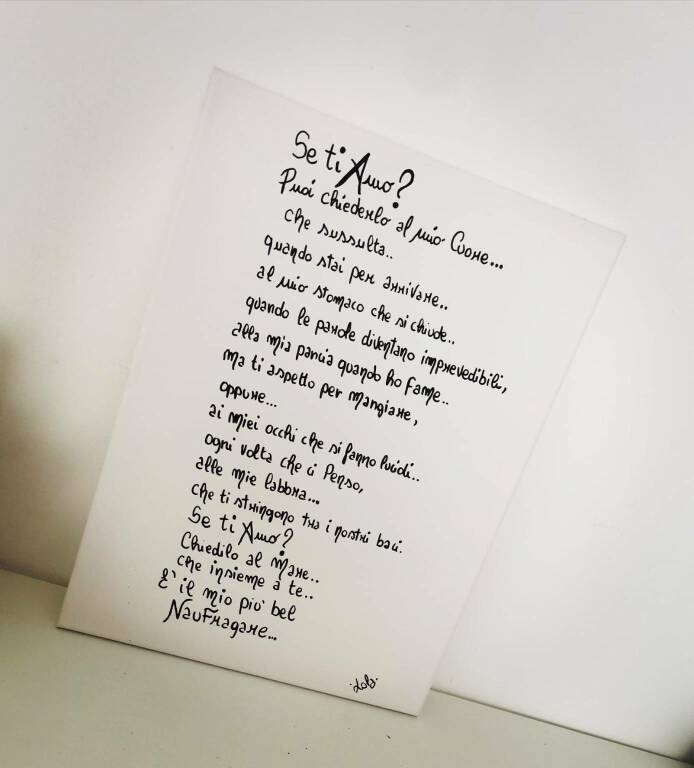 Se ti Amo?
Puoi chiederlo al mio Cuore...
che sussulta..
quando stai per arrivare..
al mio stomaco che si chiude..
quando le parole diventano imprevedibili,
alla mia pancia quando ho fame..
ma ti aspetto per mangiare,
oppure...
ai miei occhi che si fanno lucidi..
ogni volta che ci Penso,
alle mie labbra...
che ti stringono tra i nostri baci.
Se ti Amo?
Chiedilo al Mare..
che insieme a te..
E' il mio più bel
Naufragare...